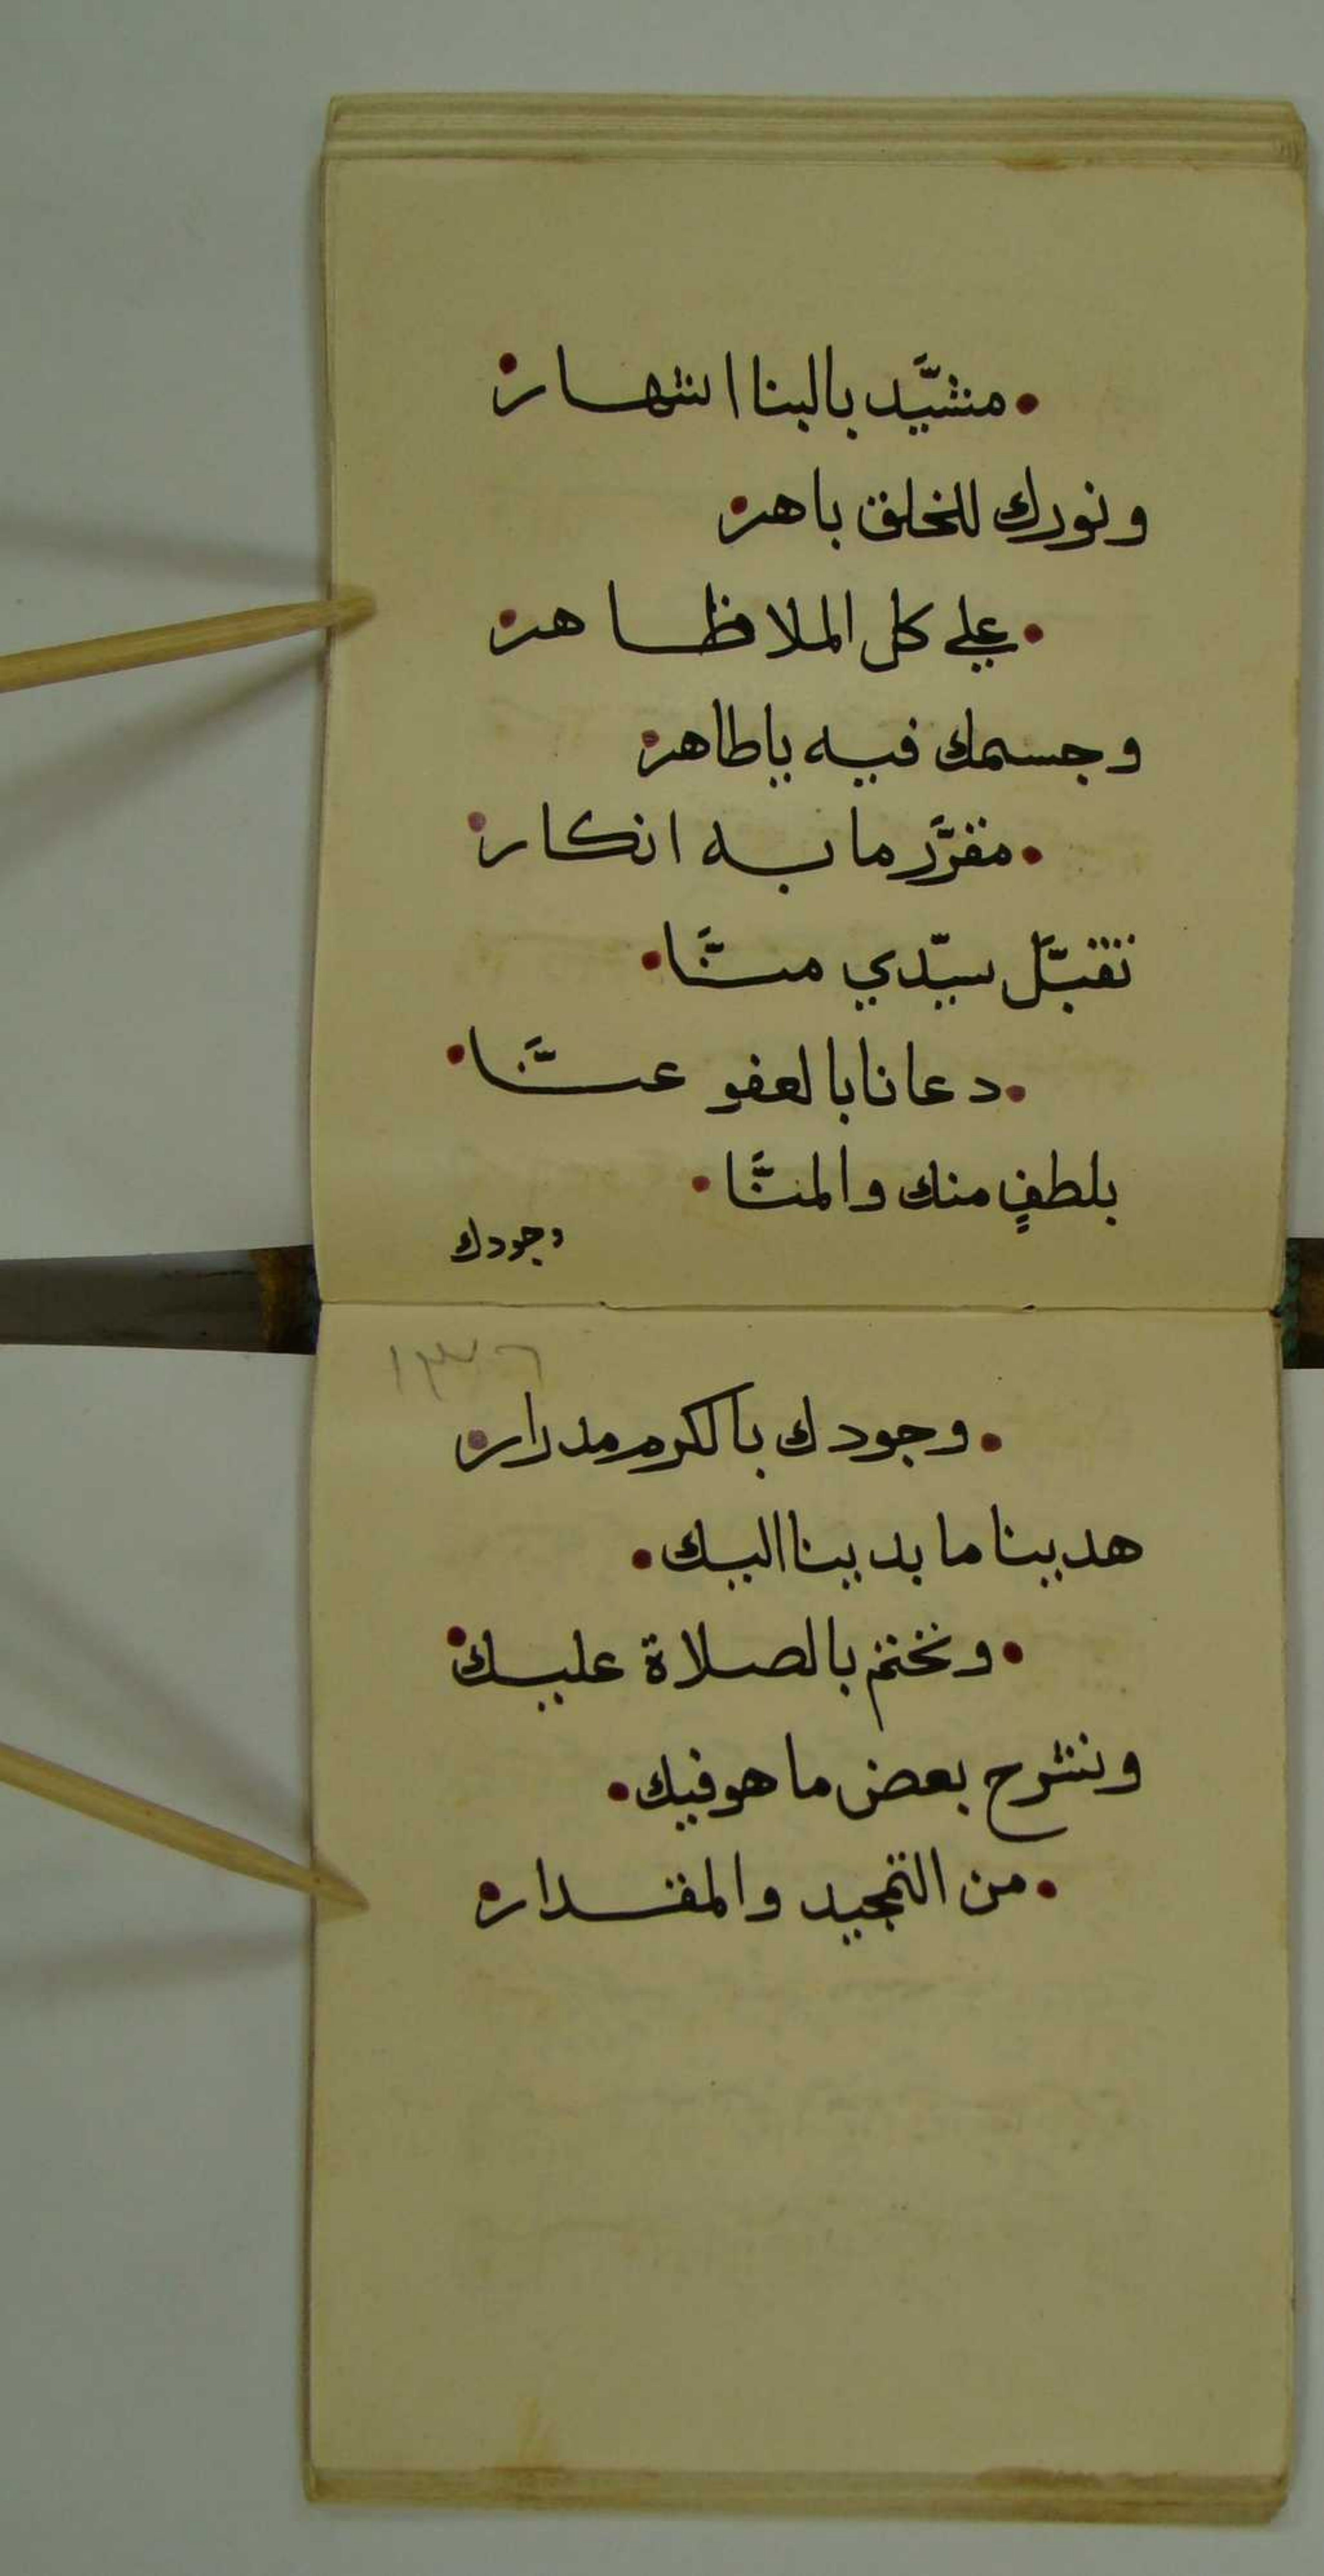 مشيَّد بالبنا اشهار
ونورك للخلق باهر
علي كل الملا ظاهر
وجسمك فيه ياطاهر
مقرَّر ما به انكار
تقبَّل سيّدي منَّا
دعانا بالعفو عنَّا
بلطفٍ منك والمنَّا
وجودك
١٣٦
وجودك بالكرم مدرار
هدينا ما بدينا اليك
ونختم بالصلاة عليك
ونشرح بعض ما هو فيك
من التمجيد والمقدار